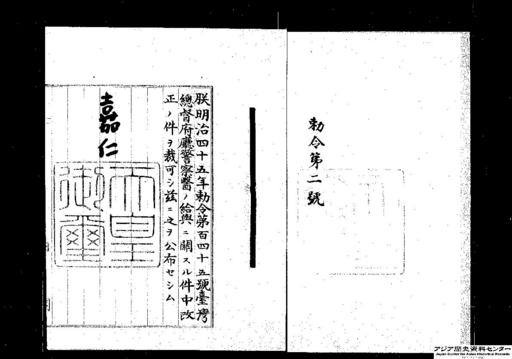 勅令第二號
朕明治四十五年勅令第百四十五號臺灣
總督府廳警察醫ノ給與ニ關スル件中改
正ノ件ヲ裁可シ茲ニ之ヲ公布セシム
嘉仁
天皇
御璽
アジア歴史資料センター
Japan Center for Asian Historical Records